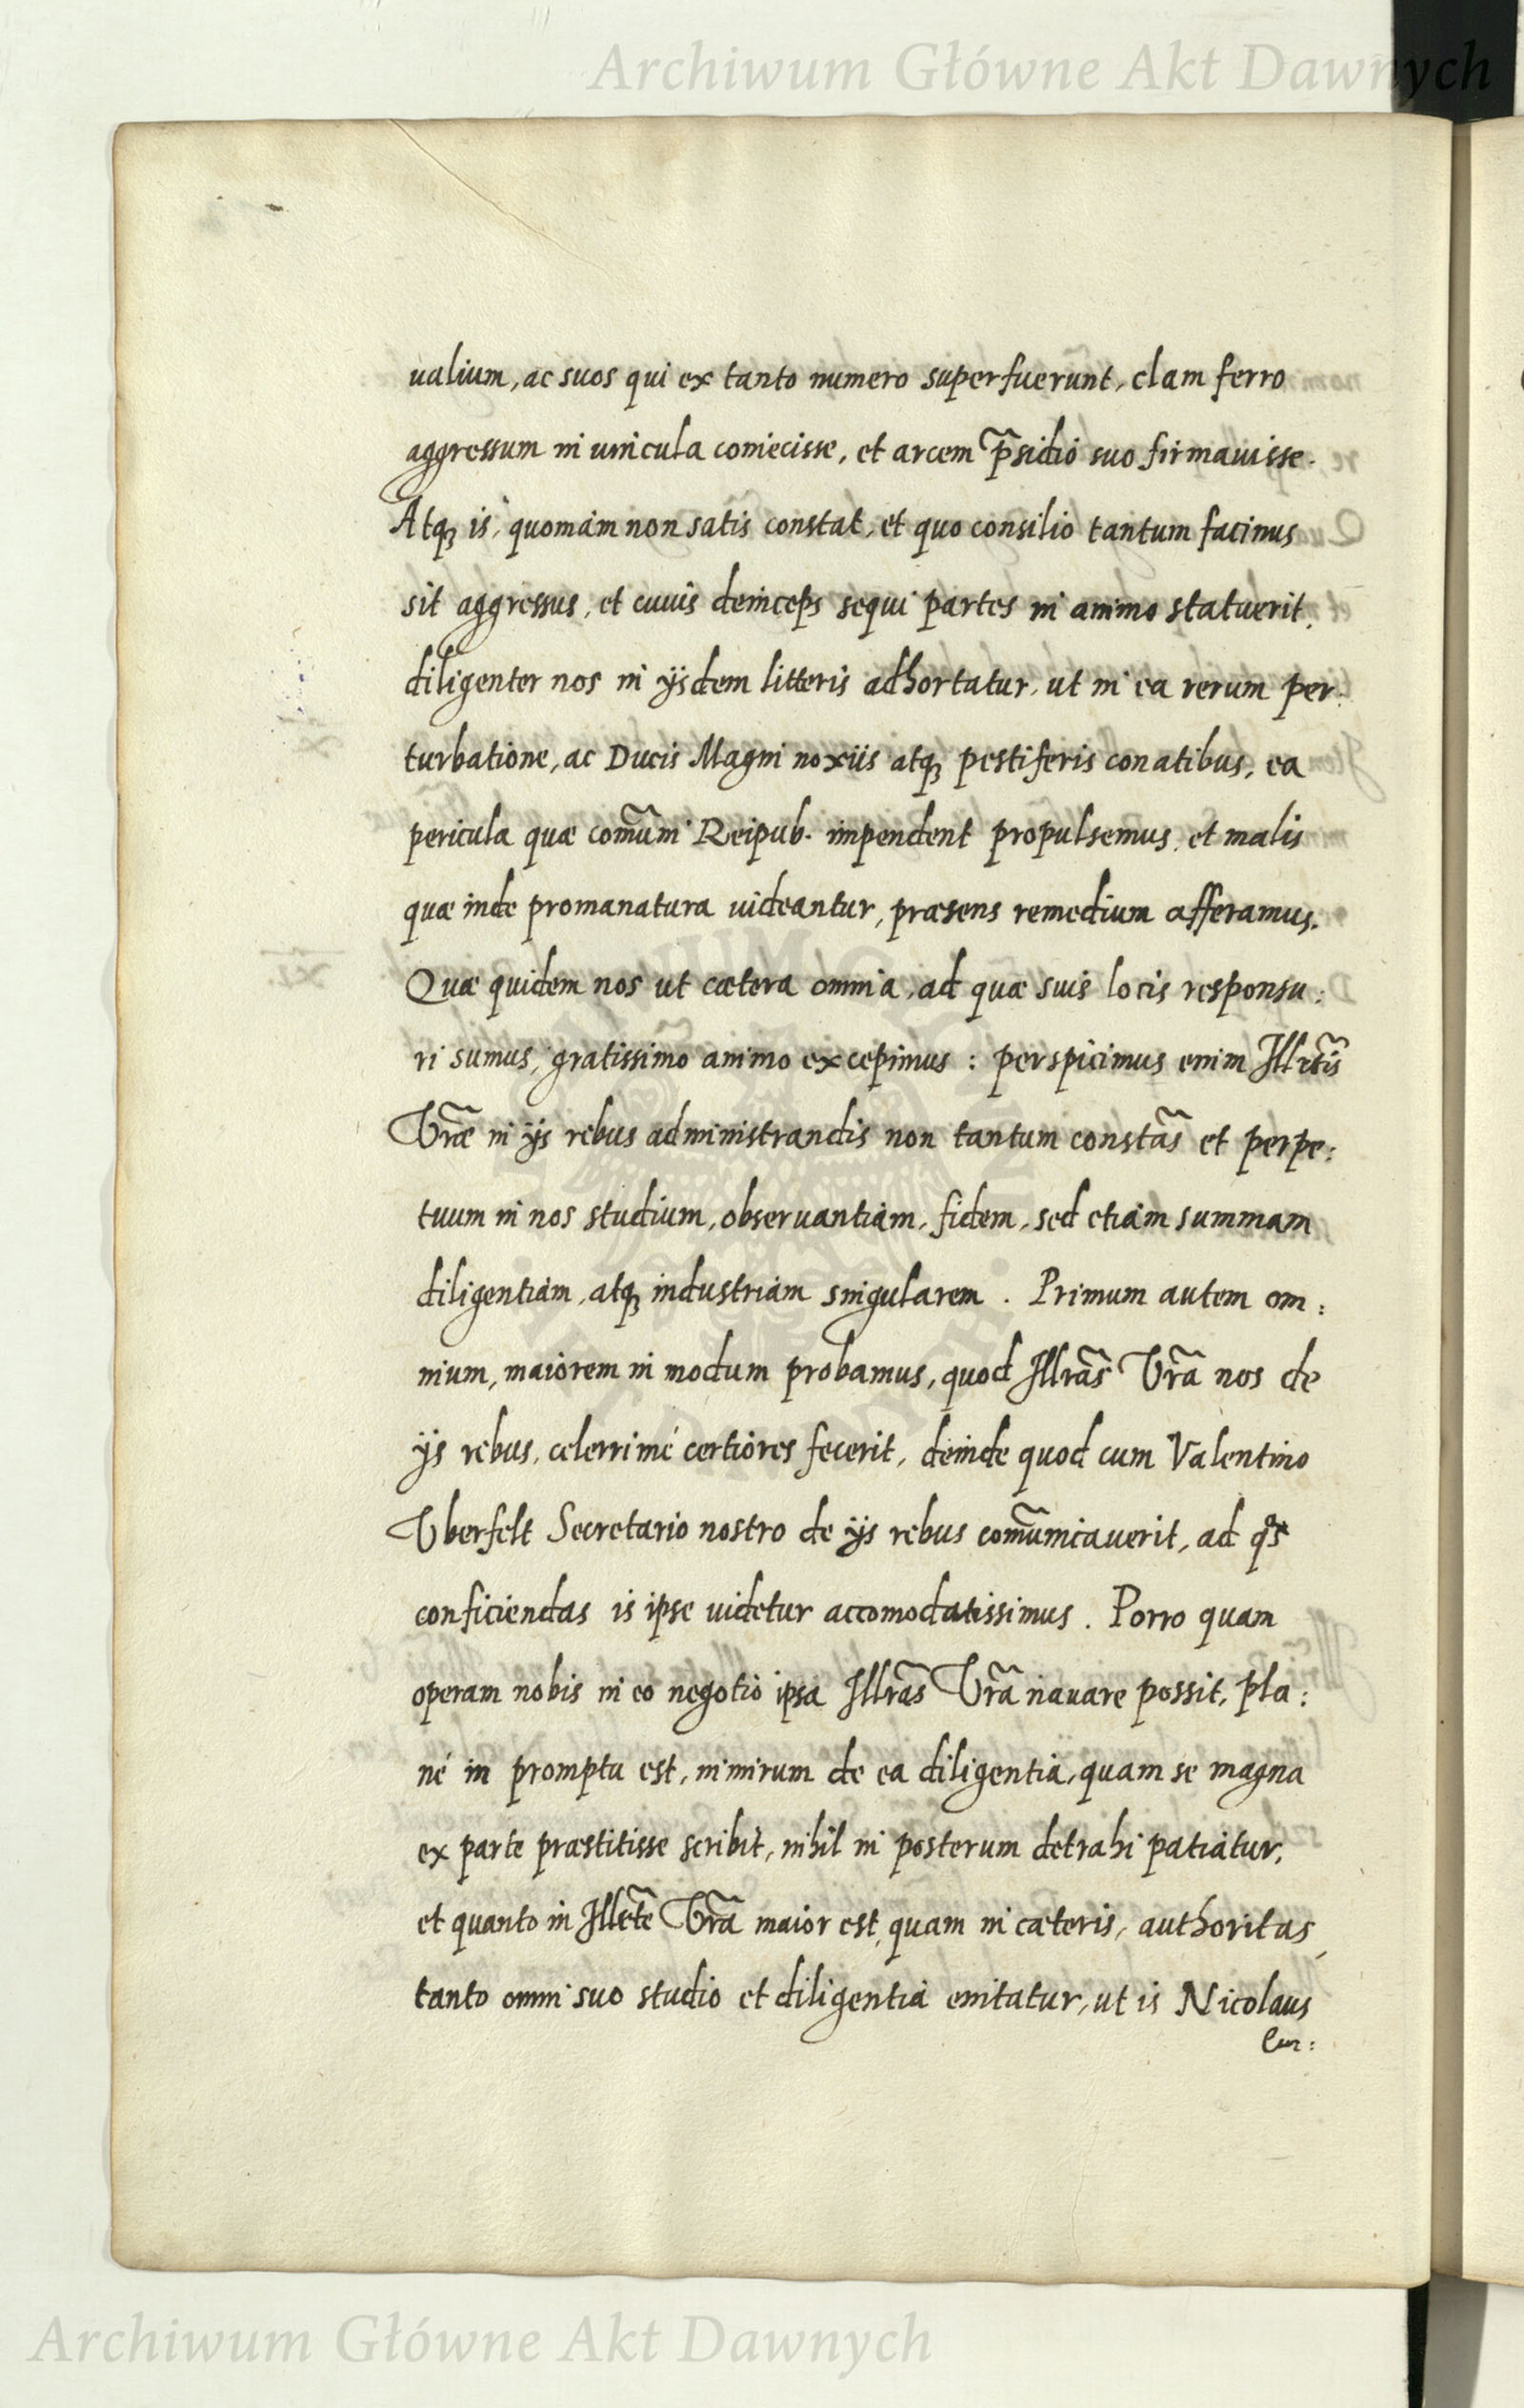 Archiwum Główne Akt Dawnych
ualium, ac suos qui ex tanto numero superfuerunt, clam ferro
aggressum in uincula coniecisse, et arcem p̃sidio suo firmauisse.
Atq₃ is, quoniam non satis constat, et quo consilio tantum facinus
sit aggressus, et cuius deinceps sequi partes in animo statuerit,
diligenter nos in ijsdem litteris adhortatur, ut in ea rerum per:
turbatione, ac Ducis Magni noxiis atq₃ pestiferis conatibus, ea
pericula quæ com̃uni Reipub. impendent propulsemus, et malis
quæ inde promanatura uideantur, præsens remedium afferamus.
Quæ quidem nos ut cætera omnia, ad quæ suis locis responsu:
ri sumus, gratissimo animo excepimus: perspicimus enim Illrt̃is
Vr̃æ in ijs rebus administrandis non tantum constãs et perpe:
tuum in nos studium, obseruantiam, fidem, sed etiam summam
diligentiam, atq₃ industriam singularem. Primum autem om:
nium, maiorem in modum probamus, quod Illrãs Vr̃a nos de
ijs rebus, celerrimé certiores fecerit, deinde quod cum Valentino
Vberfelt Secretario nostro de ijs rebus com̃unicauerit, ad q̃s
conficiendas is ipse uidetur accomodatissimus. Porro quam
operam nobis in eo negotio ipsa Illrãs Vr̃a nauare possit, pla:
né in promptu est, nimirum de ea diligentia, quam se magna
ex parte præstitisse scribit, nihil in posterum detrahi patiatur,
et quanto in Illrt̃e Vr̃a maior est, quam in cæteris, authoritas,
tanto omni suo studio et diligentia enitatur, ut is Nicolaus
Cur:
Archiwum Główne Akt Dawnych